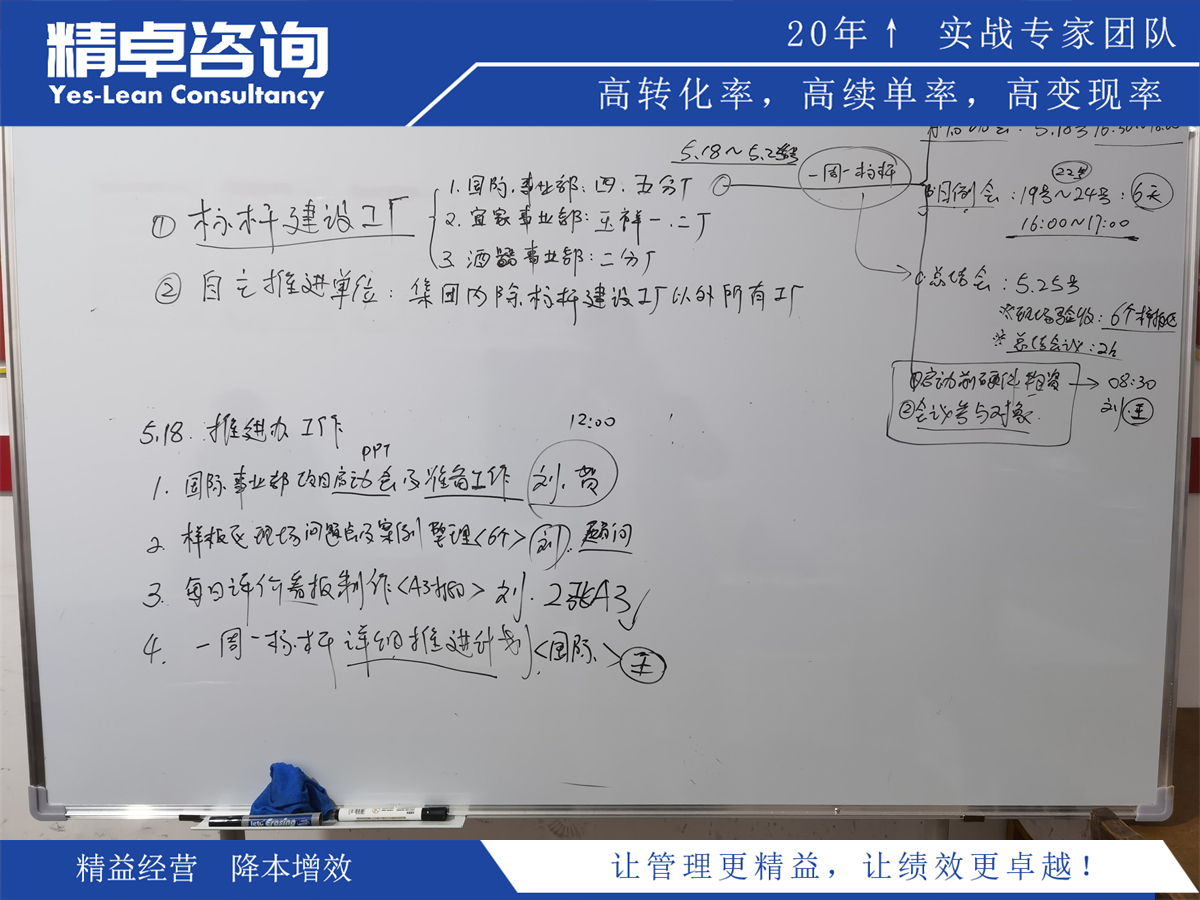 精卓咨询
Yes-Lean Consultancy
20年↑ 实战专家团队
高转化率，高续单率，高变现率
① 标杆建设工厂
1. 国际事业部：四.五分厂
2. 宜家事业部：玉祥一.二厂
3. 酒器事业部：二分厂
② 自主推进单位：集团内除标杆建设工厂以外所有工厂
5.18～5.25号
一周一标杆
会：5.18号 16:30～18:00
日例会：19号～24号：6天
16:00～17:00
总结会：5.25号
※现场验收：6个样板区
※总结会议：2h
①启动前硬件物资 → 08:30
②会议参与对象
刘.王
5.18. 推进办工作
12:00
PPT
1. 国际事业部项目启动会及准备工作 刘.黄
2. 样板区现场问题点及案例整理<6个> 刘.顾问
3. 每日评价看板制作<A3打印> 刘. 2张A3
4. 一周一标杆详细推进计划<国际.> 王
Erasing
精益经营 降本增效
让管理更精益，让绩效更卓越！